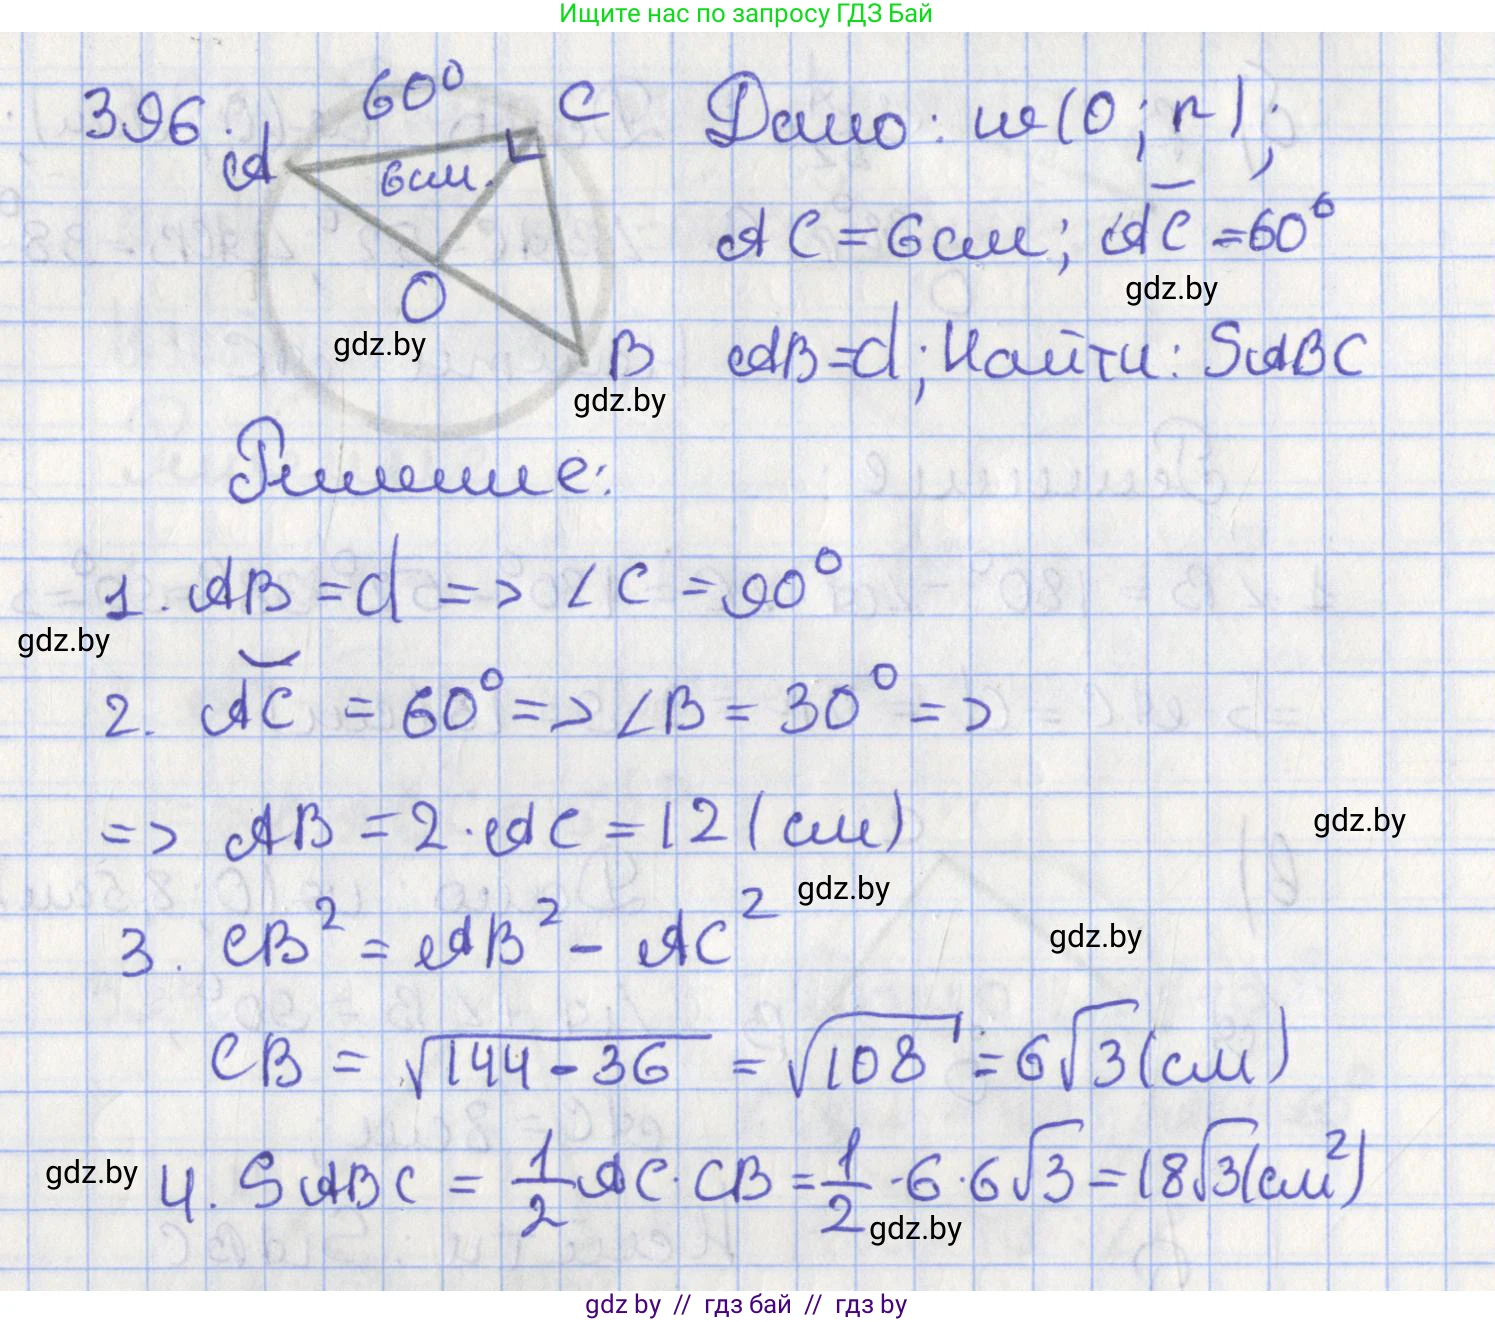 Ищите нас по запросу ГДЗ Бай
396.
60⁰
A
C
6см.
O
B
Дано: w(O; r);
AC = 6см; ◡AC = 60⁰
AB = d; Найти: SABC
gdz.by
gdz.by
gdz.by
Решение:
1. AB = d => ∠C = 90⁰
gdz.by
2. ◡AC = 60⁰ => ∠B = 30⁰ =>
=> AB = 2 · AC = 12 (см)
gdz.by
gdz.by
3. CB² = AB² - AC²
gdz.by
CB = √144 - 36 = √108 = 6√3 (см)
4. SABC = 1/2 AC · CB = 1/2 · 6 · 6√3 = 18√3 (см²)
gdz.by
gdz.by
gdz by // гдз бай // гдз by